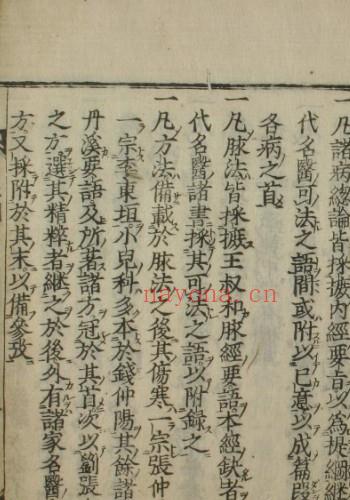 一凡諸病總論皆採摭內經要旨以爲提綱繼
代名醫可法之語間或附以己意以成篇段
各病之首
一凡脉法皆採摭王叔和脉經要語本經缺者
代名醫諸書採其可法之語以附錄之
一凡方法備載於脉法之後其傷寒一宗張仲
一宗李東垣小兒科多本於錢仲陽其餘諸
丹溪要語及所著諸方冠於其首次以劉張
之方選其精粹者繼之於後外有諸家名醫
方又採附於其末以備參攷
nayona.cn